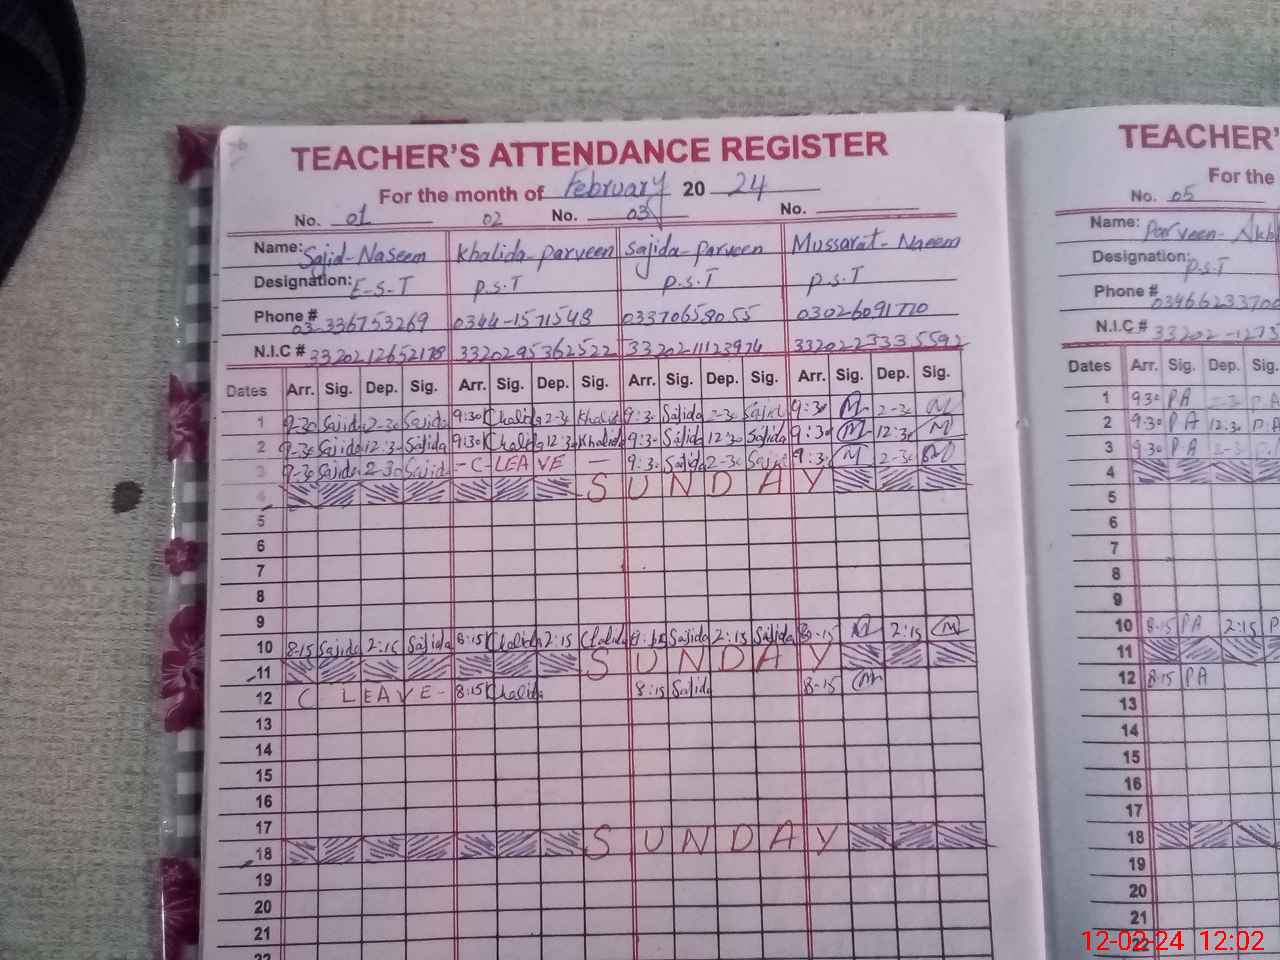 TEACHER'S ATTENDANCE REGISTER
For the month of February 20 24
No. 01 02 No. 03 No.
Name: Sajid-Naseem Khalida-parveen Sajida-parveen Mussarat-Naeem
Designation: E-S-T P.S.T P.S.T P.S.T
Phone # 03-336753269 0344-1571548 03370658055 03026091770
N.I.C # 3320212652178 3320295362522 3320211123974 3320223335592
Dates Arr. Sig. Dep. Sig. Arr. Sig. Dep. Sig. Arr. Sig. Dep. Sig. Arr. Sig. Dep. Sig.
1 9-30 Sajida 2-30 Sajida 9:30 Khalida 2-30 Khalida 9:30 Sajida 2-30 Sajida 9:30 M 2-30 M
2 9-30 Sajida 12:30 Sajida 9:30 Khalida 12:30 Khalida 9:30 Sajida 12:30 Sajida 9:30 M 12:30 M
3 9-30 Sajida 2-30 Sajid - C-LEAVE - 9:30 Sajida 2-30 Sajida 9:30 M 2-30 M
4 SUNDAY
5
6
7
8
9
10 8:15 Sajida 2:15 Sajida 8:15 Khalida 2:15 Khalida Sajida 2:15 Sajida 8-15 M 2:15 M
11 SUNDAY
12 C LEAVE- 8:15 Khalida 8:15 Sajida 8-15 M
13
14
15
16
17
18 SUNDAY
19
20
21
22
TEACHER'
For the
No. 05
Name: Parveen- Akh
Designation: P.S.T
Phone # 0346623370
N.I.C # 33202-1273
Dates Arr. Sig. Dep. Sig.
1 930 PA 2-3 P.A
2 9:30 PA 12.30 P.A
3 9:30 P-A 2-3
4
5
6
7
8
9
10 8-15 PA 2:15 P
11
12 8-15 PA
13
14
15
16
17
18
19
20
21
22
12-02-24 12:02